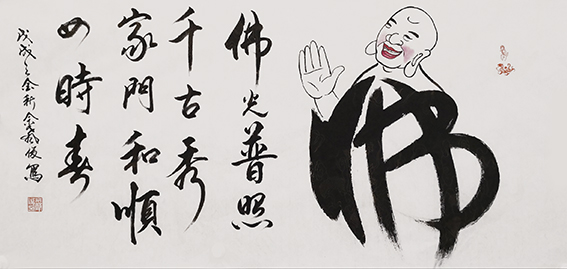 佛
佛光普照
千古秀
家門和順
四時春
戊戌之金秋 寫